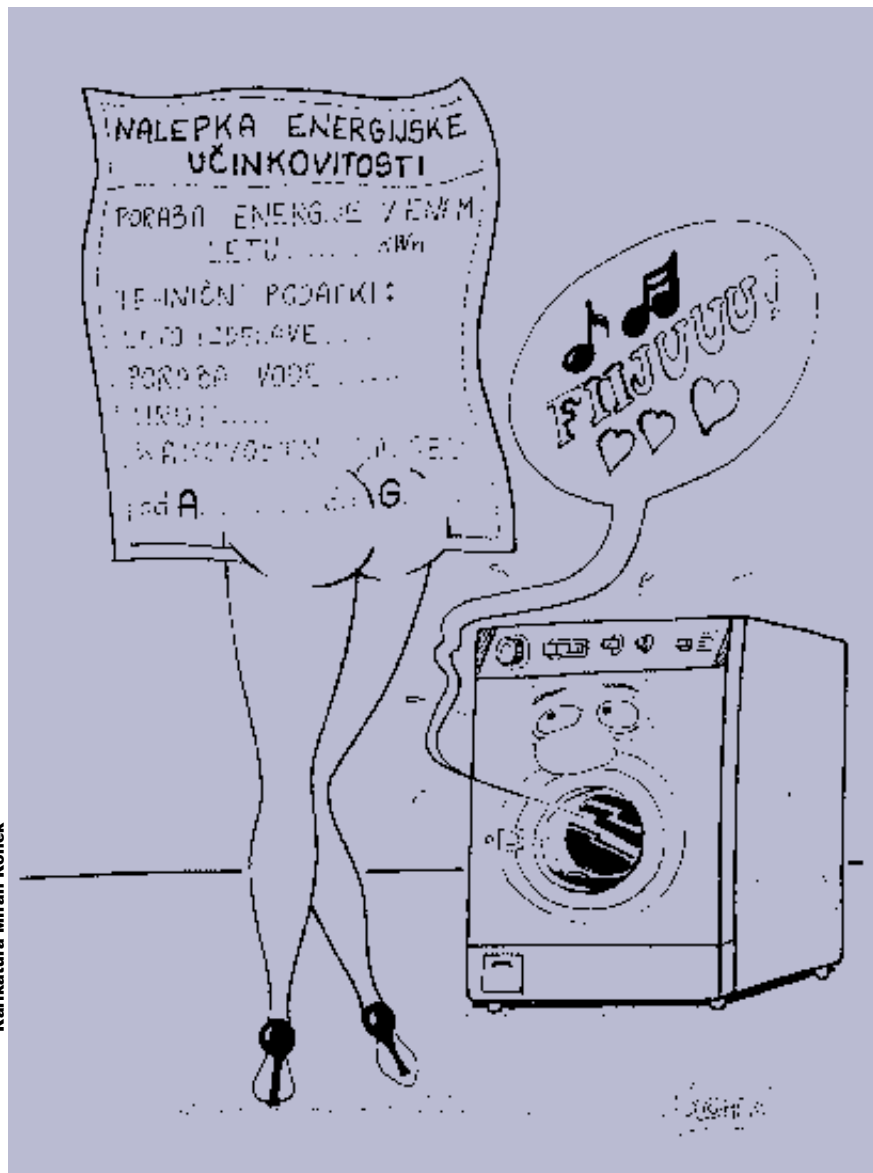 NALEPKA ENERGIJSKE
UČINKOVITOSTI
PORABA ENERGIJE V ENEM
LETU...... kWh
TEHNIČNI PODATKI:
LETO IZDELAVE....
PORABA VODE......
od A........ do G
FIIJUUU!
Karikatura Miran Kohek